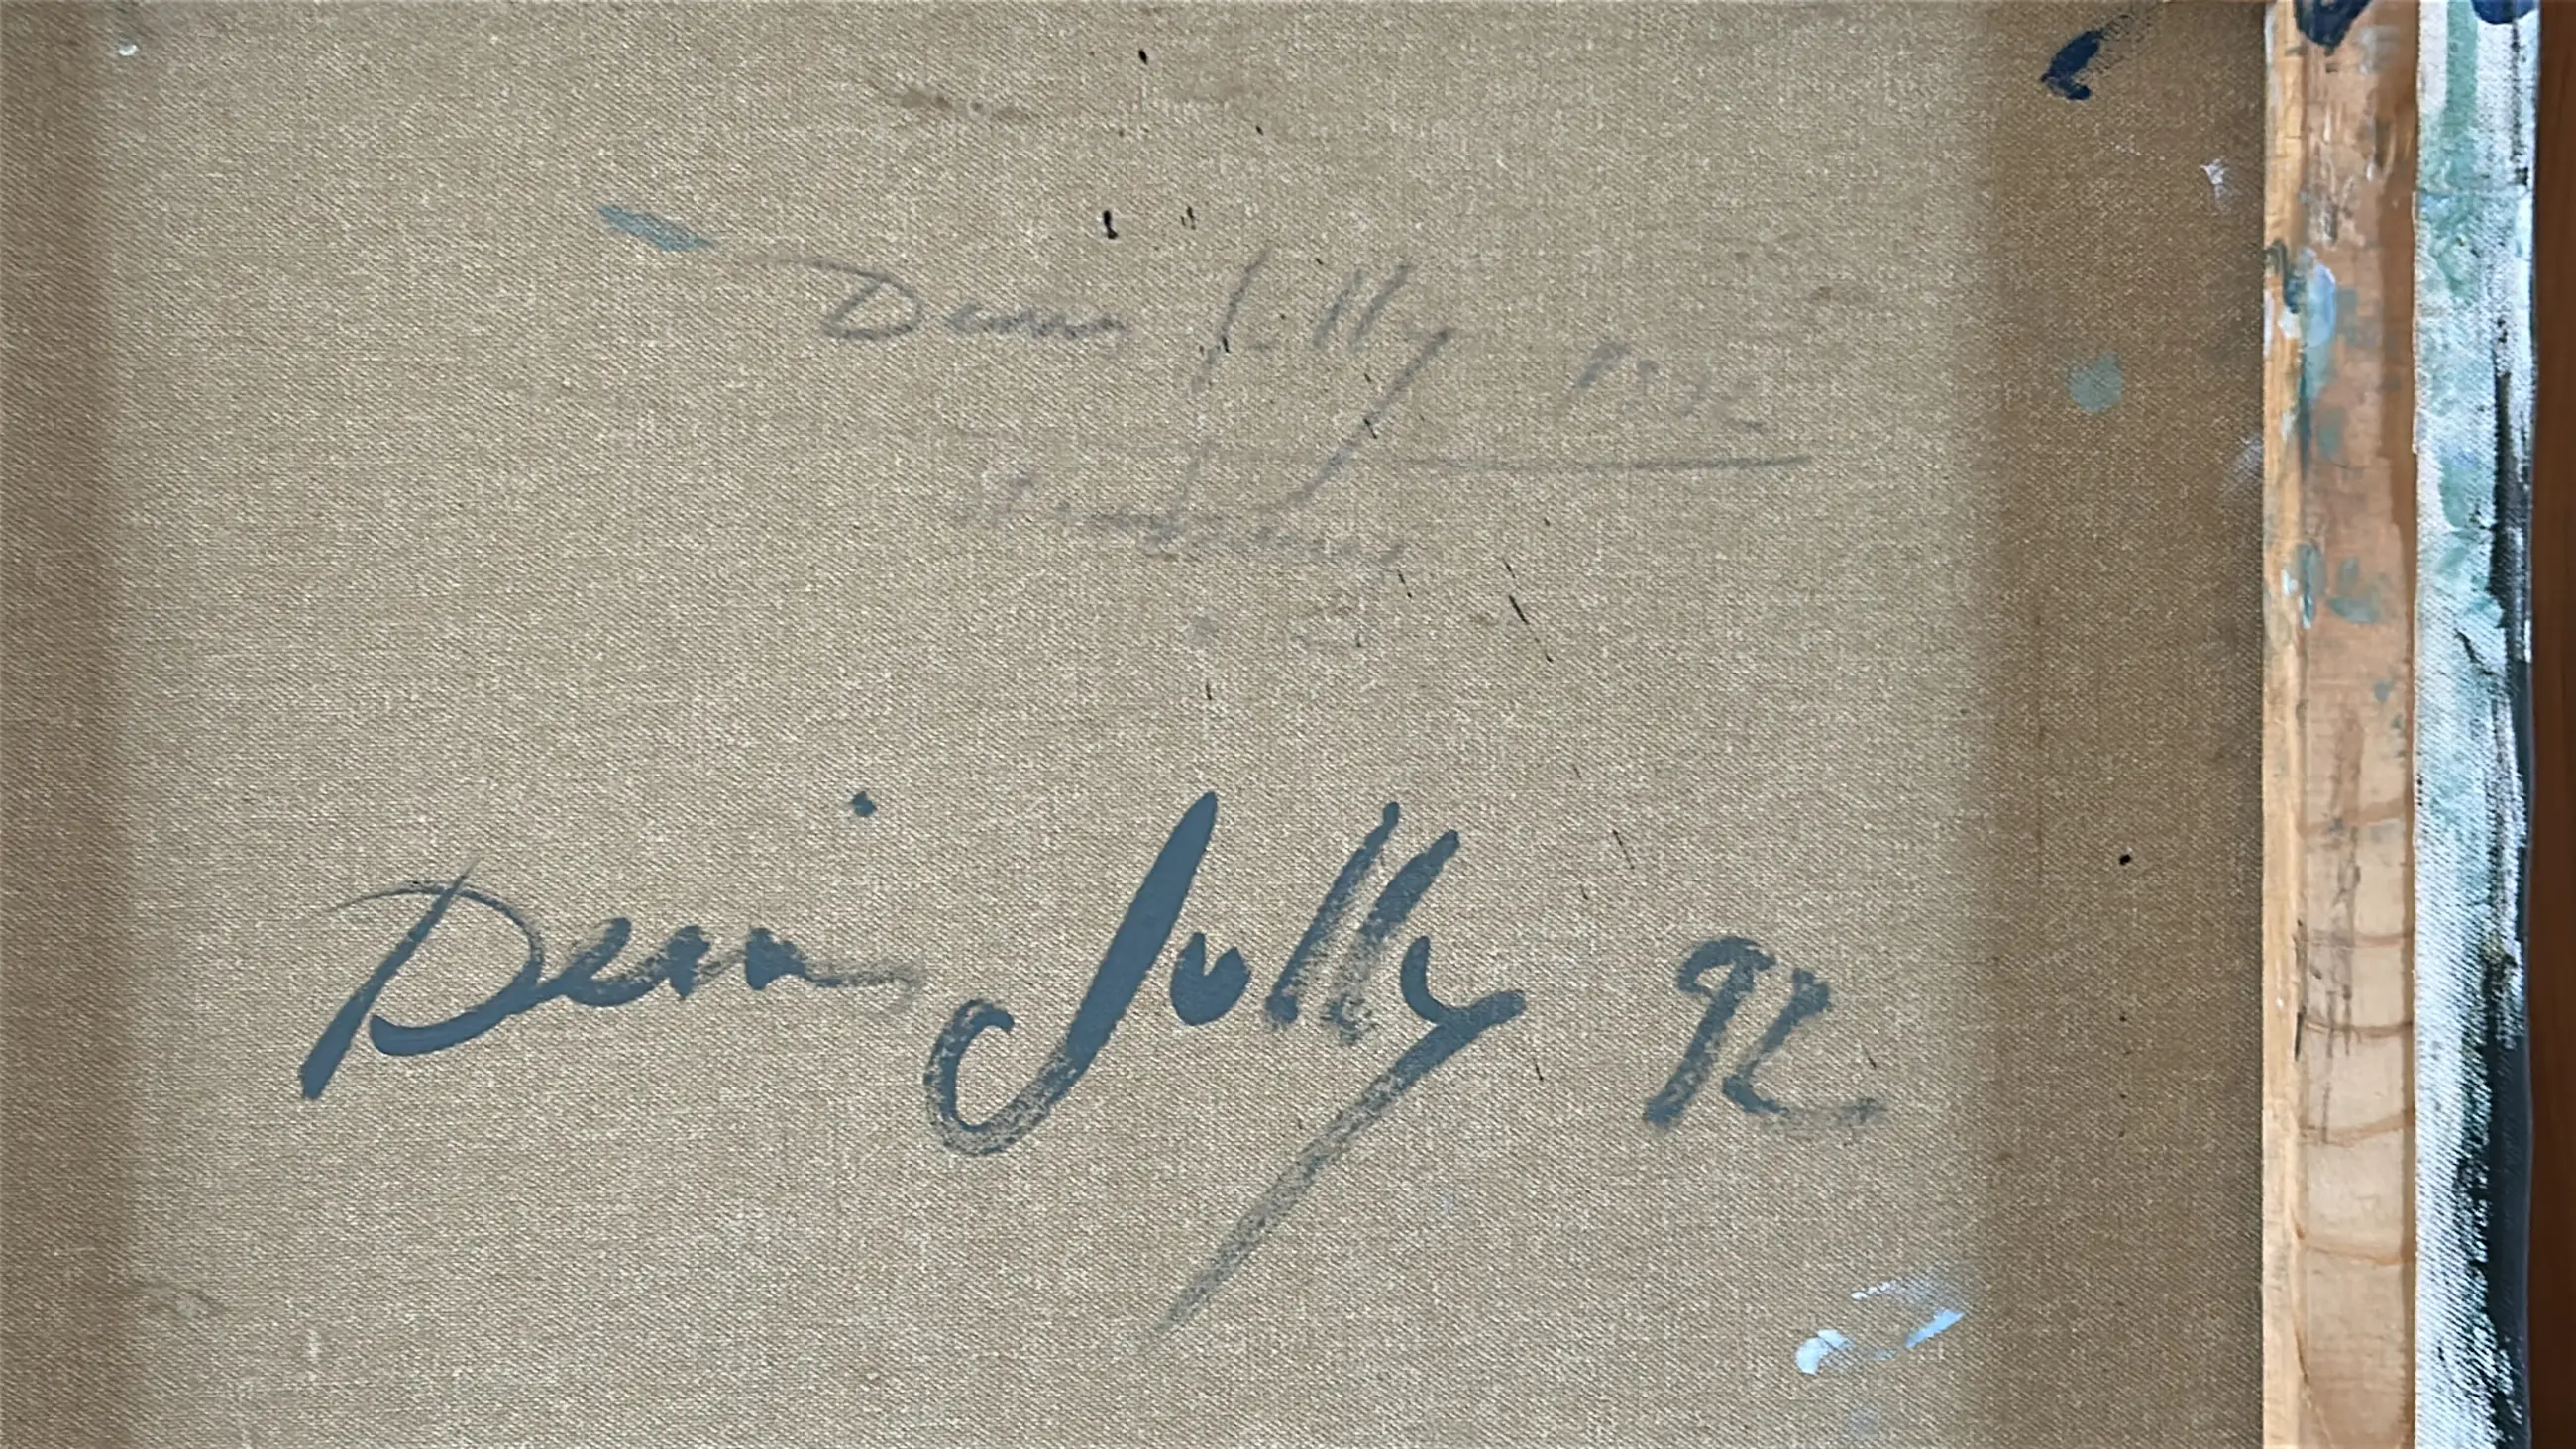 Denis Jolly 1992
Denis Jolly 92